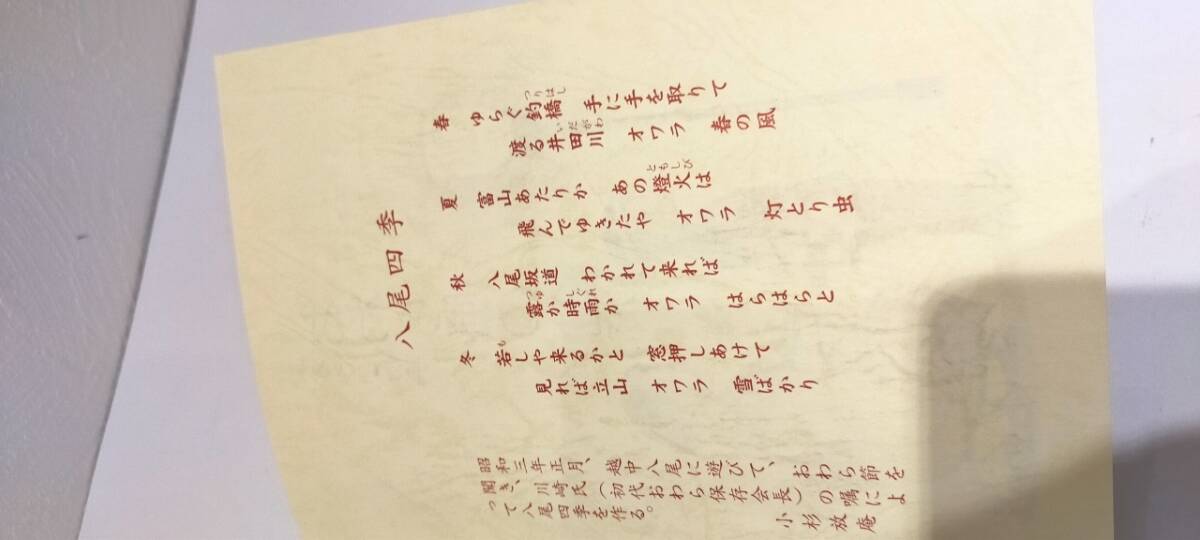 八尾四季
春 ゆらぐ釣橋 手に手を取りて
渡る井田川 オワラ 春の風
夏 富山あたりか あの燈火は
飛んでゆきたや オワラ 灯とり虫
秋 八尾坂道 わかれて来れば
露か時雨か オワラ はらはらと
冬 若しや来るかと 窓押しあけて
見れば立山 オワラ 雪ばかり
昭和三年正月、越中八尾に遊びて、おわら節を
聞き、川崎氏(初代おわら保存会長)の嘱によ
って八尾四季を作る。
小杉放庵